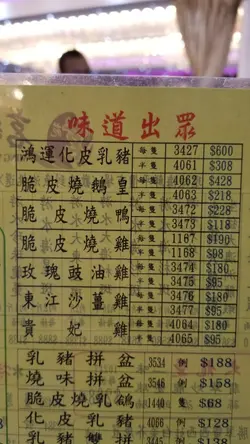 味道出眾
鴻運化皮乳豬 每隻 3427 $600
半隻 4061 $308
脆皮燒鵝皇 每隻 4062 $428
半隻 4063 $218
脆皮燒鴨 每隻 3472 $228
半隻 3473 $118
脆皮燒雞 每隻 1167 $190
半隻 1168 $98
玫瑰豉油雞 每隻 3474 $180
半隻 3475 $95
東江沙薑雞 每隻 3476 $180
半隻 3477 $95
貴妃雞 每隻 4064 $180
半隻 4065 $95
乳豬拼盆 3534 例 $188
燒味拼盆 3546 例 $158
脆皮燒乳鴿 1440 隻 $68
化皮乳豬 4066 例 $128
乳豬雙拼 $138